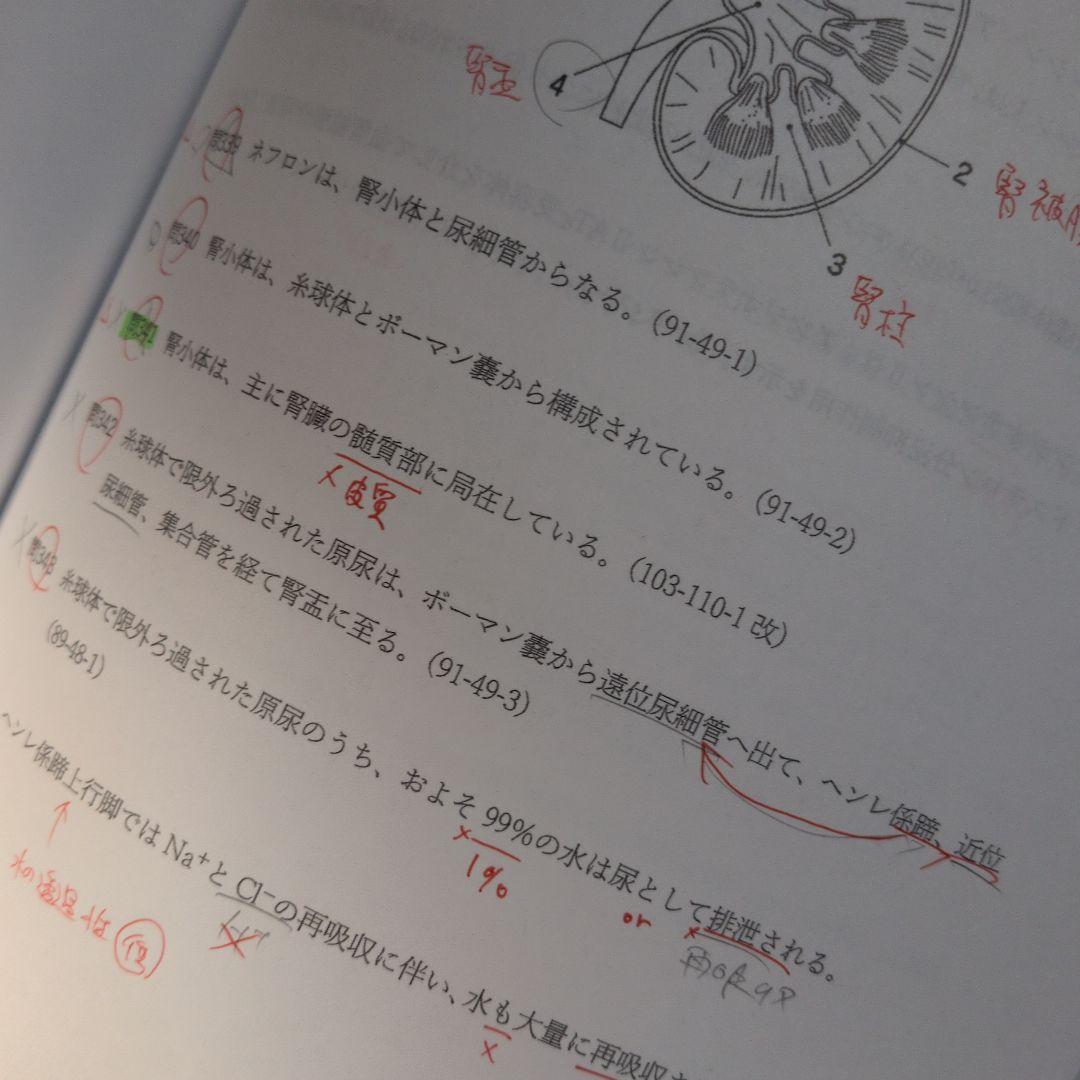 腎盂
4
2
腎被
3
腎柱
問339 ネフロンは、腎小体と尿細管からなる。(91-49-1)
問340 腎小体は、糸球体とボーマン嚢から構成されている。(91-49-2)
問341 腎小体は、主に腎臓の髄質部に局在している。(103-110-1 改)
× 皮質
問342 糸球体で限外ろ過された原尿は、ボーマン嚢から遠位尿細管へ出て、ヘンレ係蹄、近位
尿細管、集合管を経て腎盂に至る。(91-49-3)
問343 糸球体で限外ろ過された原尿のうち、およそ 99%の水は尿として排泄される。
× 1%
or
×
再吸収
(89-48-1)
ヘンレ係蹄上行脚では Na⁺と Cl⁻の再吸収に伴い、水も大量に再吸収
水の透過性は 低
×